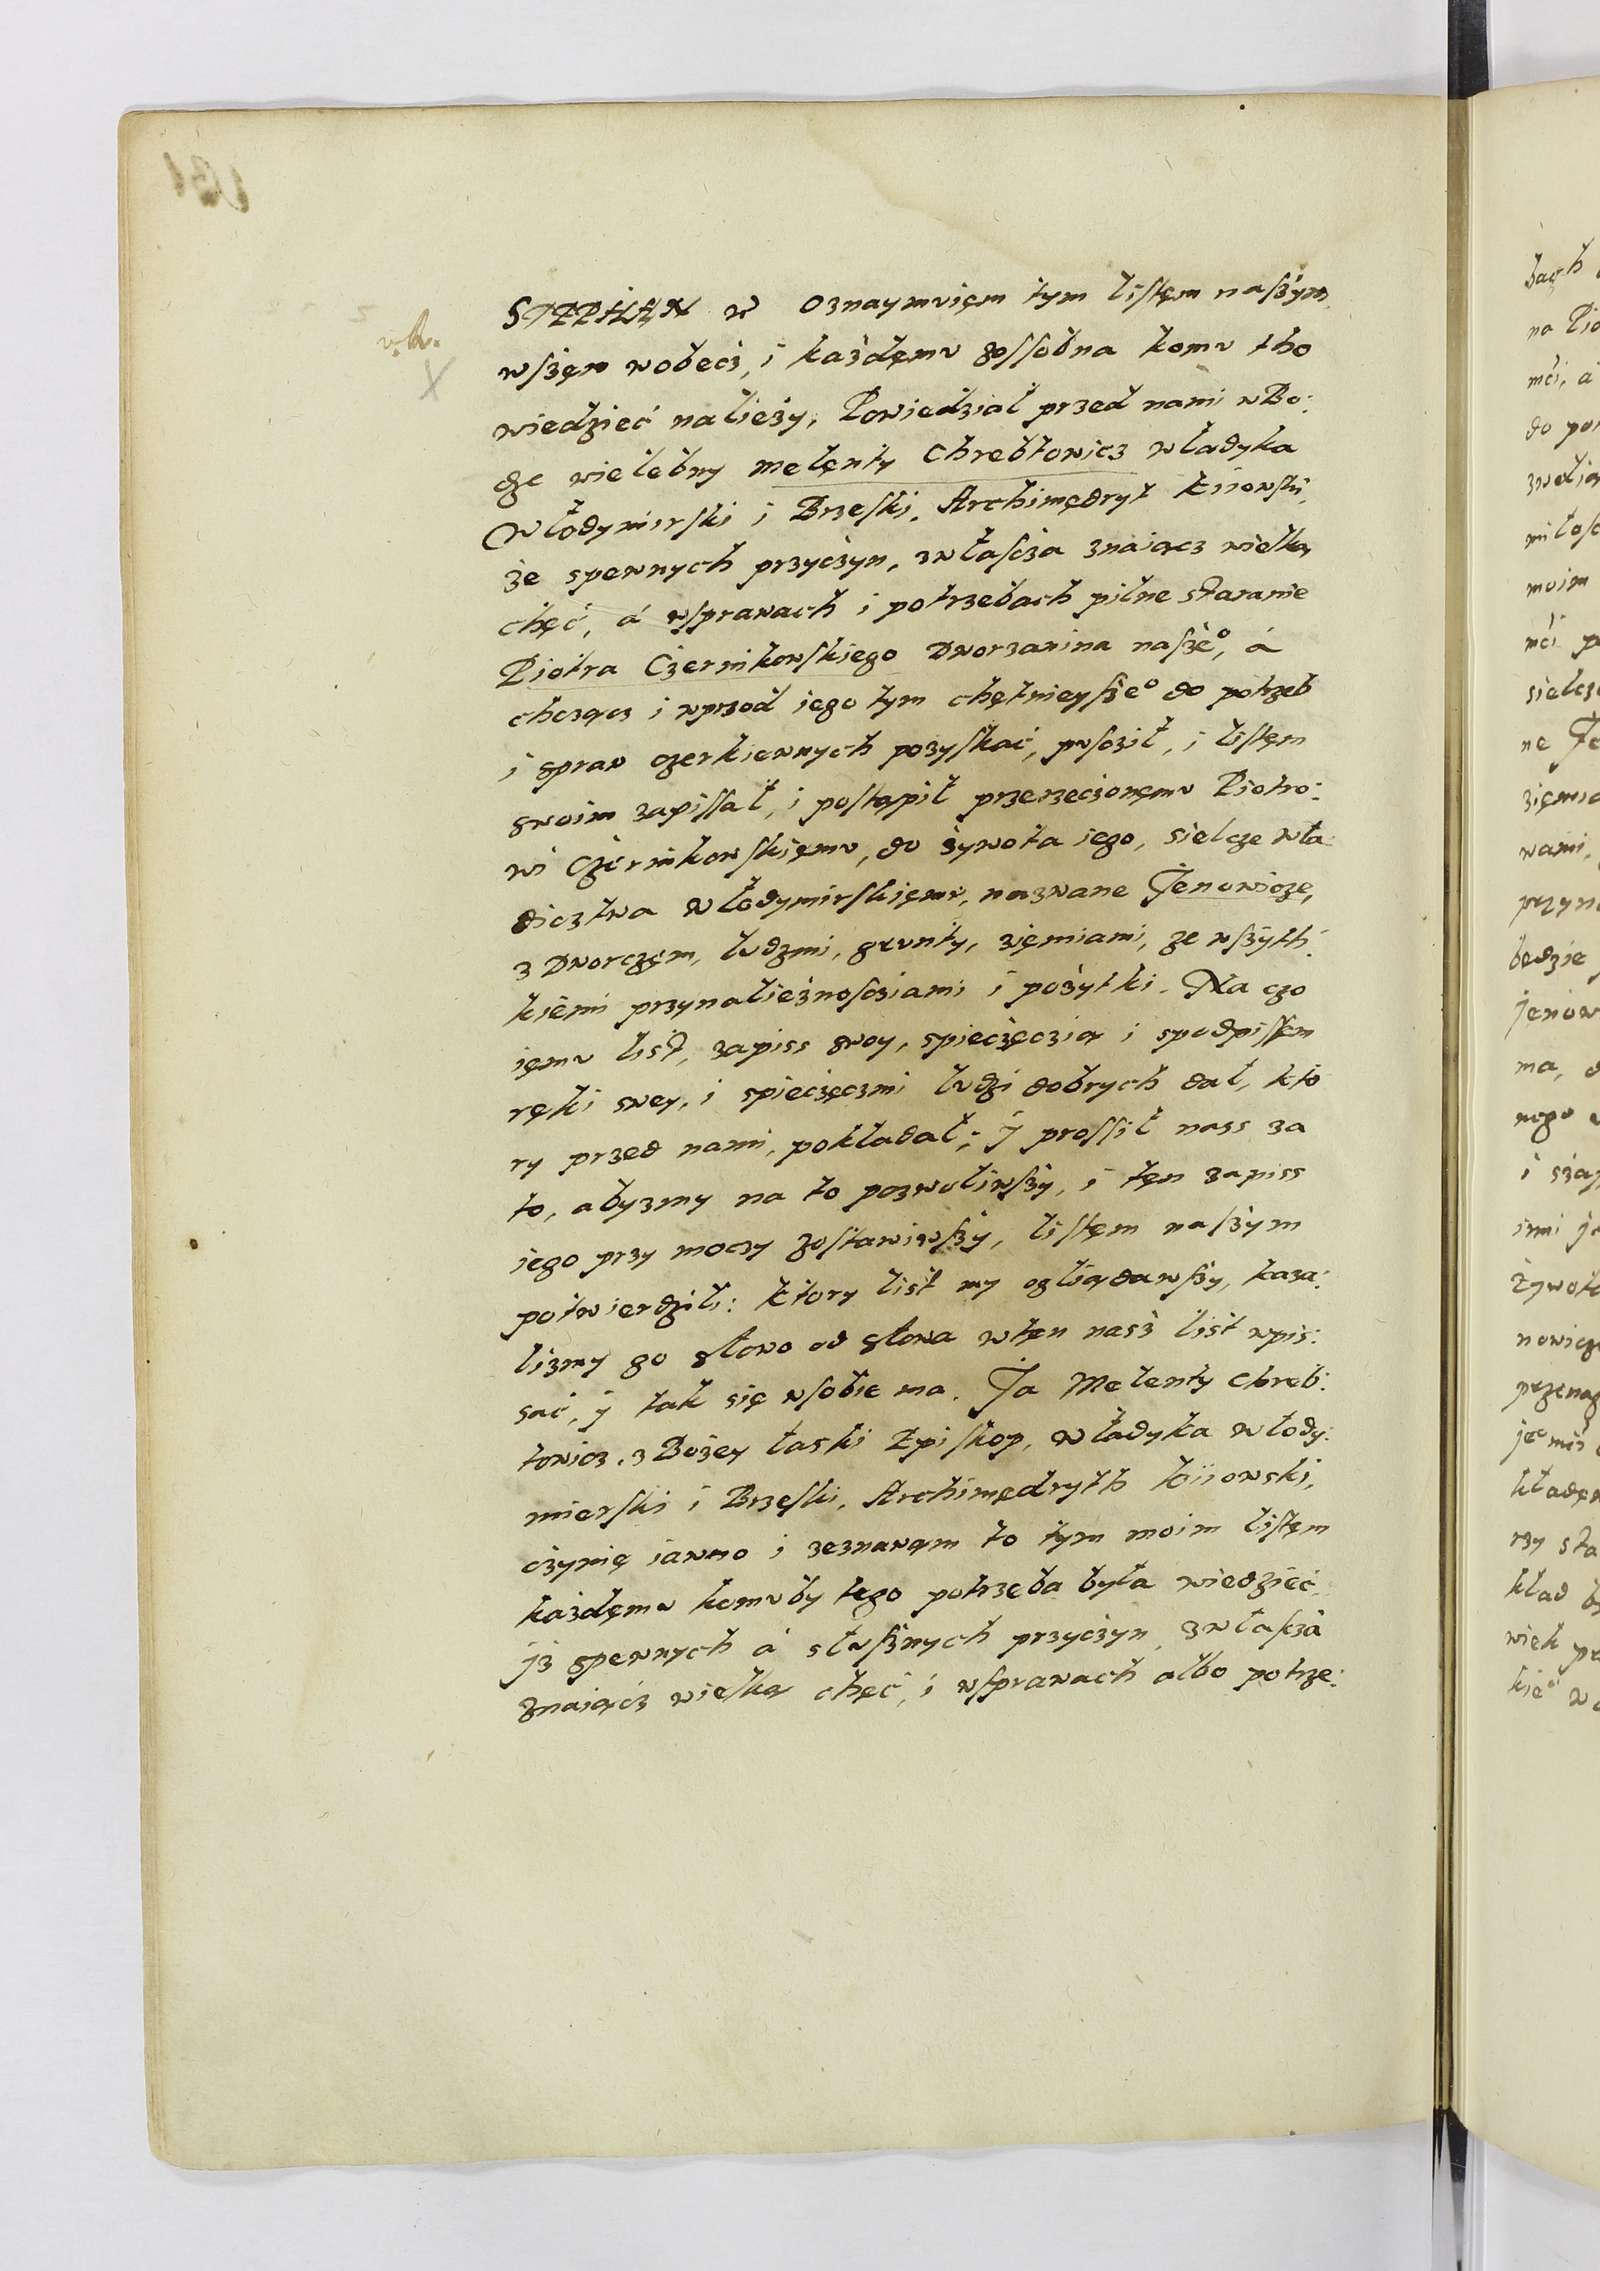 STEPHAN etc Oznaymuięm tym listęm naszÿm
wszęm wobecz, i kazdęmu zossobna komu tho
wiedzieć należy, Powiedział przed nami wBo:
dze wielebny melenty Chrebtowicz władyka
Włodymirski i Brzeski, Archimędryt kiiowski,
że spewnych przyczyn, zwłascza znaiącz wielką
chęć, á wsprawach i potrzebach pilne staranie
Piotra Czernikowskiego Dworzanina nasze°, á
chcząącz i wprzod iego tym chętnieysze° do potrzeb
i spraw czerkiewnych pozyskać, puscził, i listęm
swoim zapissał, i postąpił przerzeczonęmu Piotro:
wi Czernikowskięmu, do żywota iego, sielcze wła:
dicztwa włodymirskięmu, nazwane Jenowicze,
z Dworczęm, ludzmi, grunty, zięmiami, ze wszÿth:
kiemi przynależnosciami i pożytki. Na czo
ięmu list, zapiss swoy, spieczęczią i spodpissęm
ręki swey, i spieczęczmi ludzi dobrych dał, kto
ry przed nami, pokładał; J prossił nass za
to, abyzmy na to pozwoliwszÿ, i tęn zapiss
iego przy moczy zostawiwszÿ, listęm naszÿm
potwierdzili: ktory list my oglądawszy, kaza:
lizmy go słowo od słowa wtęn nasż list wpis:
sać, ÿ tak się wsobie ma. Ja Melenty Chreb:
towicz, z Bożey łaski Episkop, władyka włody:
mierski i Brzeski, Archimędryth kiiowski,
czynię iawno i zeznawąm to tym moim listęm
każdęmu komuby tego potrzęba była wiedzieć,
jż spewnych á słusznych przyczyn, zwłascza
znaiącz wielką chęć, i wsprawach albo potrze: